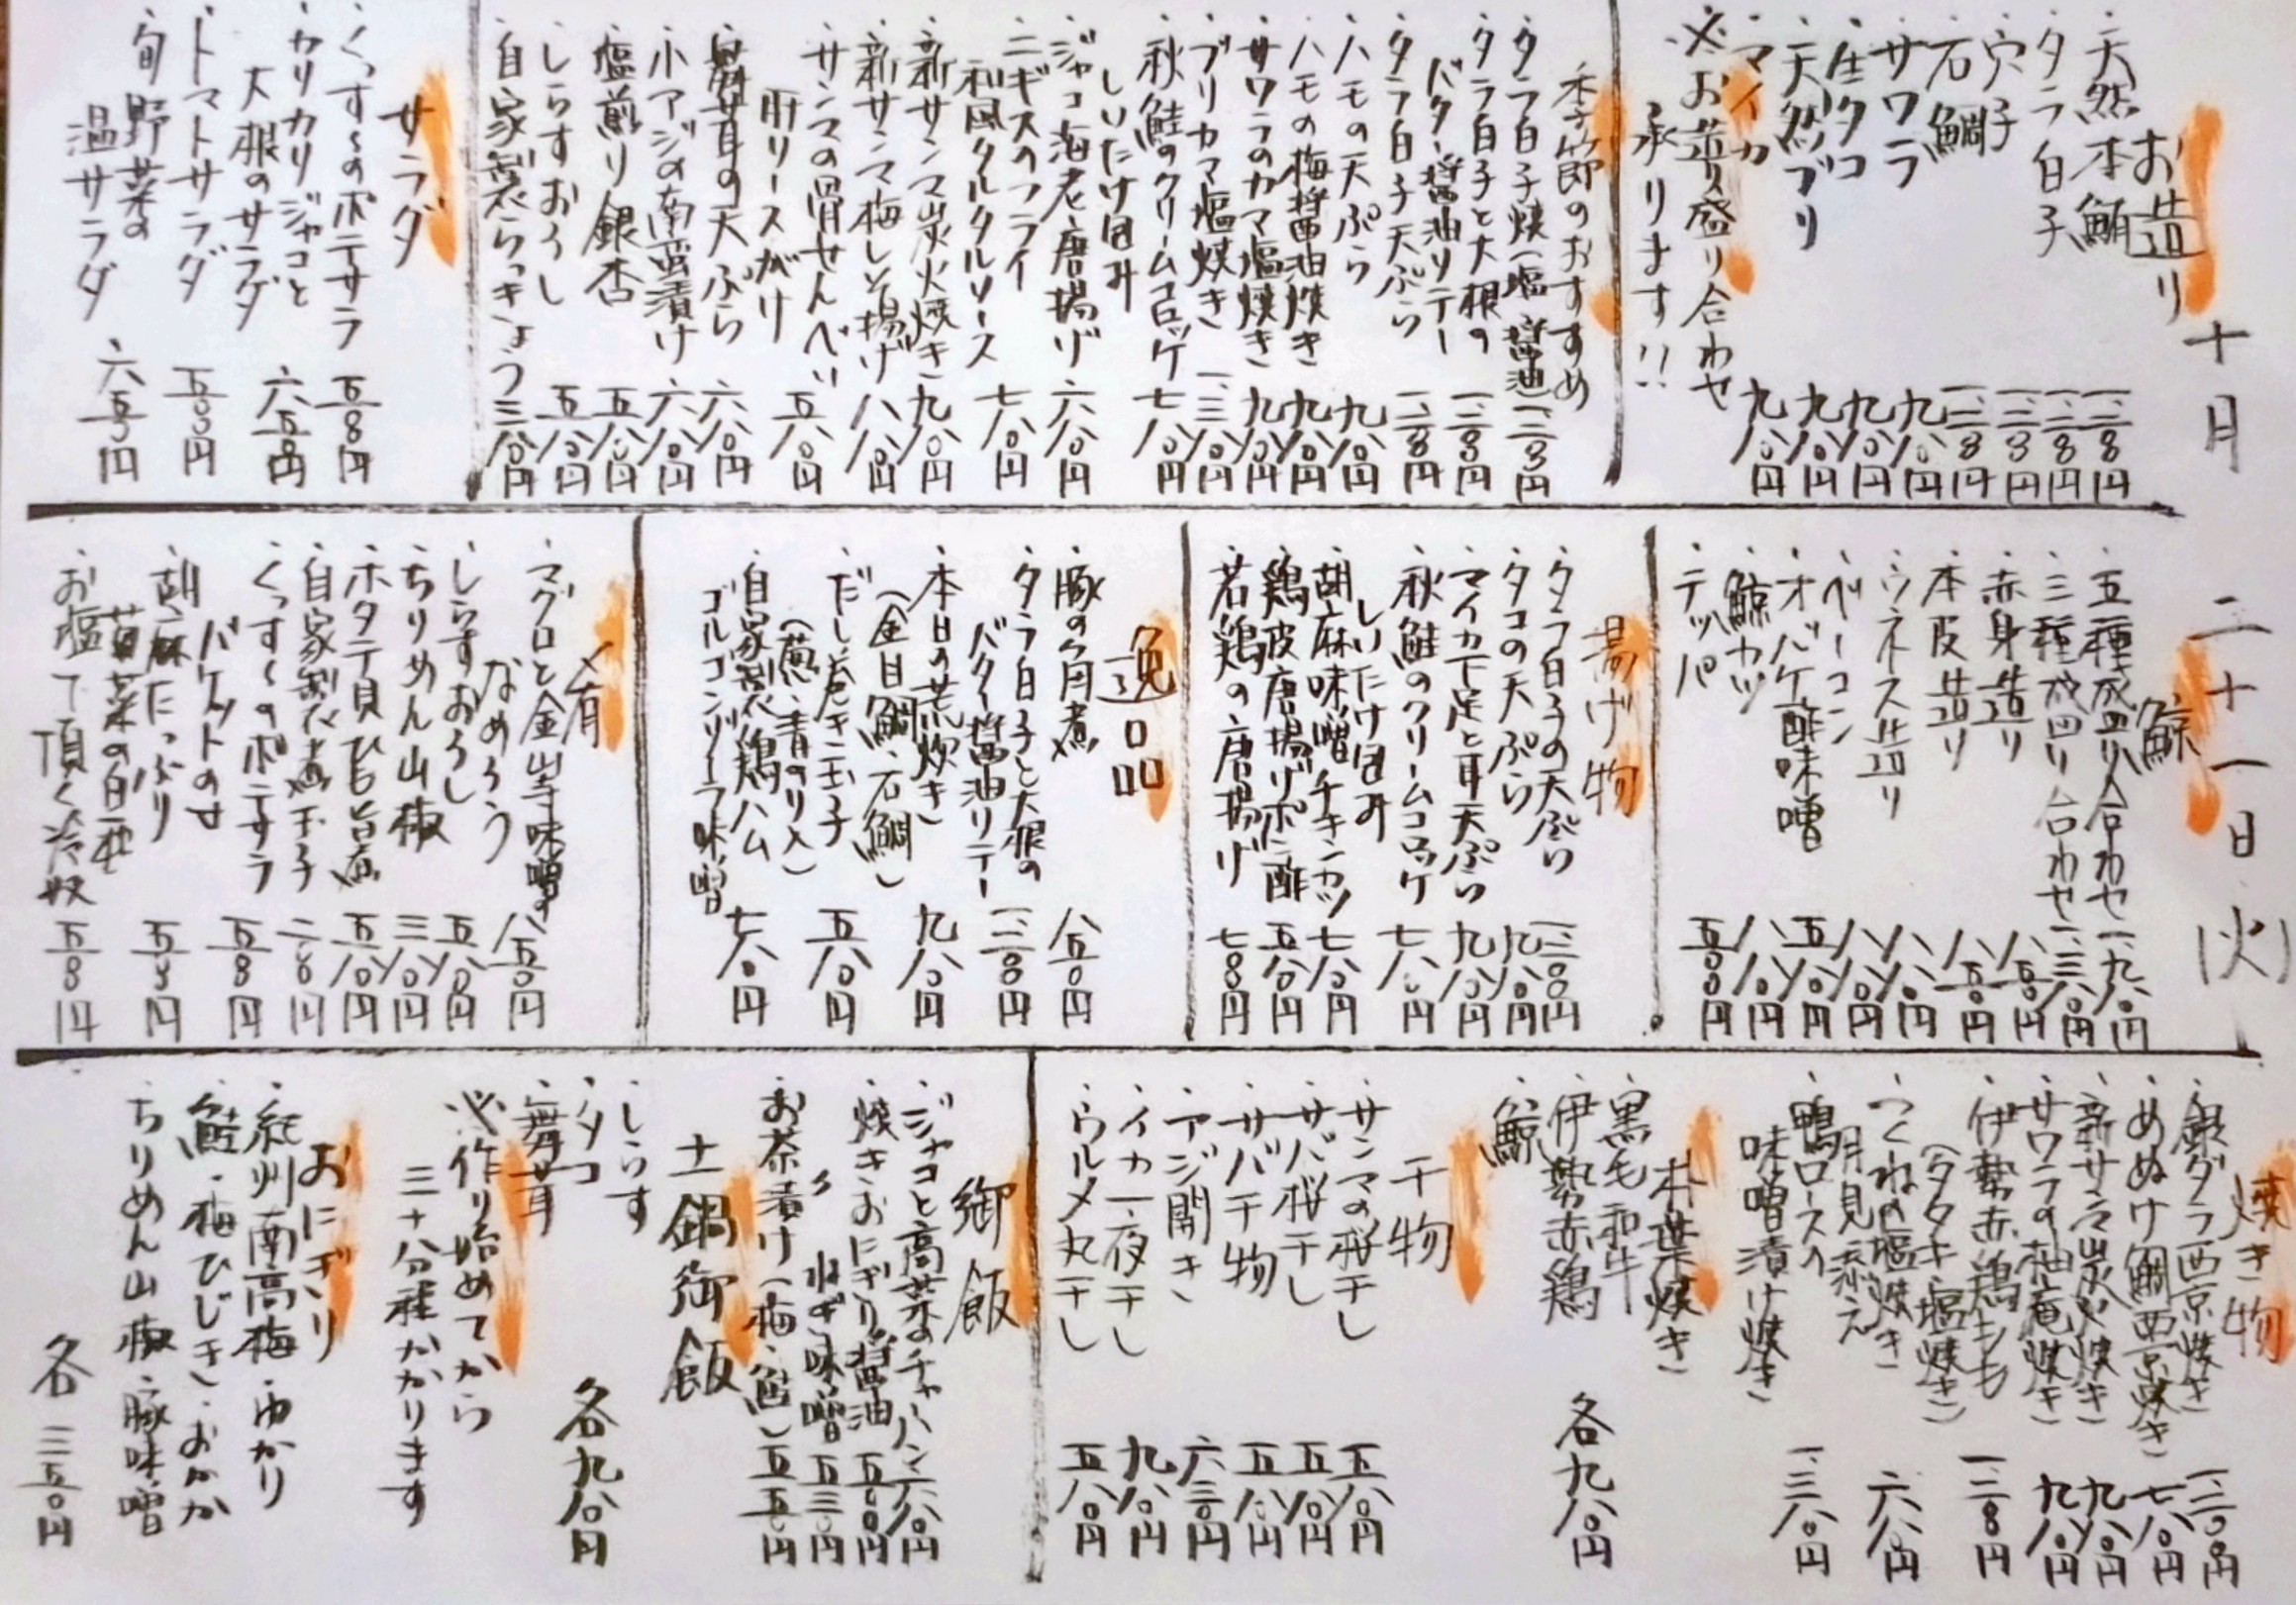 十月二十一日(火)
お造り
・天然本鮪 一、二〇〇円
・タラ白子 一、二〇〇円
・穴子 一、二〇〇円
・石鯛 一、二〇〇円
・サワラ 九八〇円
・生タコ 九八〇円
・天然ブリ 九八〇円
・マイカ 九八〇円
※お造り盛り合わせ
承ります!!
季節のおすすめ
・タラ白子焼(塩・醤油)
・タラ白子と大根の
バター醤油ソテー
・タラ白子天ぷら
・ハモの天ぷら 九八〇円
・ハモの梅醤油焼き 九八〇円
・サワラのカマ塩焼き 九八〇円
・ブリカマ塩焼き 一、三八〇円
・秋鮭のクリームコロッケ 七八〇円
しいたけ包み
・ジャコ海老唐揚げ 六八〇円
・ニギスのフライ
和風タルタルソース 七八〇円
・新サンマ炭火焼き 九八〇円
・新サンマ梅しそ揚げ 八八〇円
・サンマの骨せんべい
肝ソースがけ 五八〇円
・舞茸の天ぷら 六八〇円
・小アジの南蛮漬け 六八〇円
・塩煎り銀杏 五八〇円
・しらすおろし 五八〇円
・自家製らっきょう 三八〇円
サラダ
・くっすーのポテサラ 五〇〇円
・カリカリジャコと
大根のサラダ 六五〇円
・トマトサラダ 五五〇円
・旬野菜の
温サラダ 六五〇円
鯨
・五種盛り合わせ 一、九八〇円
・三種盛り合わせ 一、三八〇円
・赤身造り 八五〇円
・本皮造り 八五〇円
・ウネス造り 八八〇円
・ベーコン 八八〇円
・オバケ酢味噌 五八〇円
・鯨カツ 八八〇円
・テッパ 五五〇円
揚げ物
・タラ白子の天ぷら
・タコの天ぷら 九八〇円
・マイカ下足と耳天ぷら 九八〇円
・秋鮭のクリームコロッケ
しいたけ包み 七八〇円
・胡麻味噌チキンカツ 七八〇円
・鶏皮唐揚げポン酢 五八〇円
・若鶏の唐揚げ 七〇〇円
逸品
・豚の角煮 八五〇円
・タラ白子と大根の
バター醤油ソテー
・本日の荒炊き
(金目鯛・石鯛) 九八〇円
・だし巻き玉子
(葱・青のり入) 五八〇円
・自家製鶏ハム
ゴルゴンゾーラ味噌 七八〇円
肴
・マグロと金山寺味噌の
なめろう 八五〇円
・しらすおろし 五八〇円
・ちりめん山椒 三八〇円
・ホタテ貝ひも旨煮 五八〇円
・自家製煮玉子 二〇〇円
・くっすーのポテサラ
バケットのせ 五〇〇円
・胡麻たっぷり
青菜の白和 五五〇円
・お塩で頂く冷奴 五〇〇円
焼き物
・銀ダラ西京焼き
・めぬけ鯛西京焼き 七八〇円
・新サンマ炭火焼き 九八〇円
・サワラの柚庵焼き 九八〇円
・伊勢赤鶏もも
(タタキ・塩焼き)
・つくねの塩焼き
月見添え 六八〇円
・鴨ロースの
味噌漬け焼き 一、三八〇円
朴葉焼き
・黒毛和牛
・伊勢赤鶏
・鯨
各九八〇円
干物
・サンマの桜干し 五八〇円
・サバ桜干し 五八〇円
・サバ干物 五八〇円
・アジ開き 六三〇円
・イカ一夜干し 九八〇円
・ウルメ丸干し 五八〇円
御飯
・ジャコと高菜のチャーハン 六八〇円
・焼きおにぎり 醤油
〃 ねぎ味噌 五三〇円
・お茶漬け(梅・鮭) 五五〇円
土鍋御飯
・しらす
・タコ
・舞茸
各九八〇円
※作り始めてから
三十分程かかります
おにぎり
・紀州南高梅・ゆかり
・鮭・梅ひじき・おかか
・ちりめん山椒・豚味噌
各三五〇円